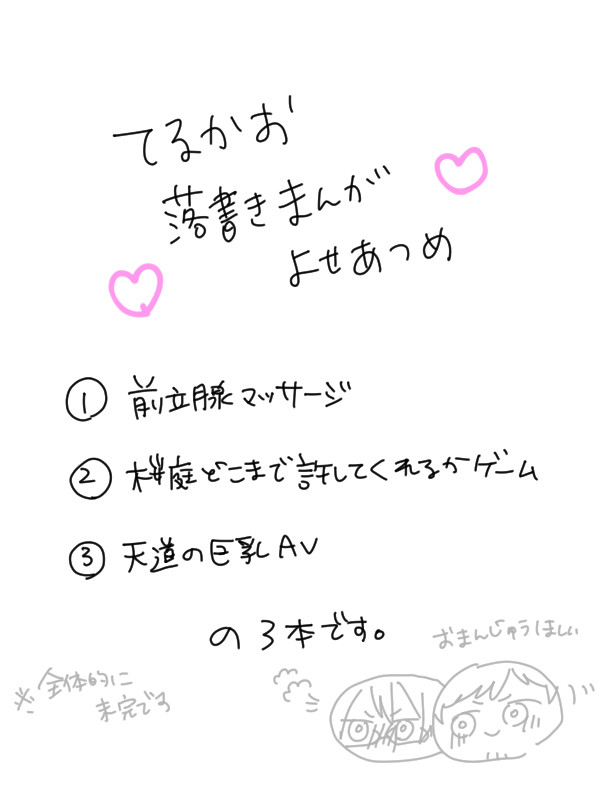 てるかお
落書きまんが
よせあつめ
① 前立腺マッサージ
② 桜庭どこまで許してくれるかゲーム
③ 天道の巨乳AV
の3本です。
おまんじゅうほしい
※全体的に
未完である